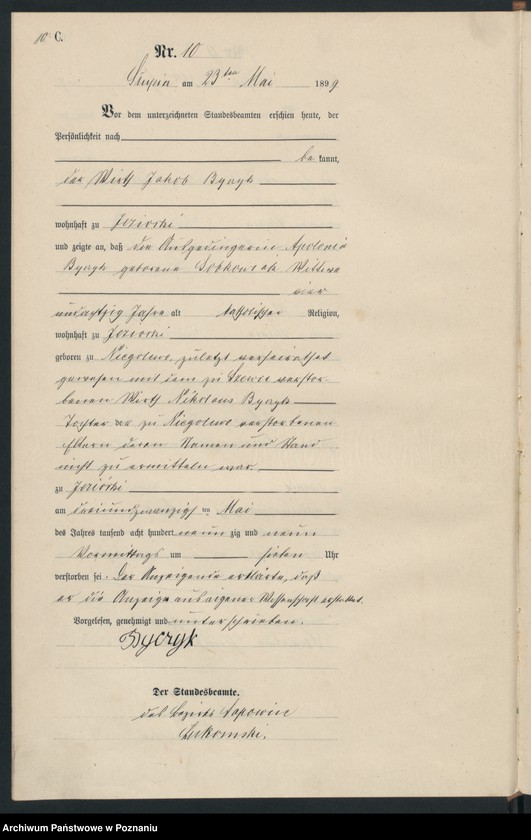 10 C.
Nr. 10
Słupia am 23ten Mai 1899
Vor dem unterzeichneten Standesbeamten erschien heute, der
Persönlichkeit nach
be kannt,
der Wirth Jakob Byczyk
wohnhaft zu Jeziorki
und zeigte an, daß die Ausgedingerin Apolonia
Byczyk geborene Wittwe
vier
undachtzig Jahre alt katholischer Religion,
wohnhaft zu Jeziorki
geboren zu Niegolewo, zuletzt verheirathet
gewesen mit dem zu verstor-
benen Wirth Nikolaus Byczyk
Tochter der zu Niegolewo verstorbenen
Eltern deren Namen und Stand
nicht zu ermitteln war
zu Jeziórki
am dreiundzwanzigsten Mai
des Jahres tausend acht hundert neun zig und neun
Vormittags um sieben Uhr
verstorben sei. Der Anzeigende erklärte, daß
er die Anzeige aus eigener Wissenschaft erstattet.
Vorgelesen, genehmigt und unterschrieben.
Byczyk
Der Standesbeamte.
des Bezirks Sapowice
Lukomski.
Archiwum Państwowe w Poznaniu